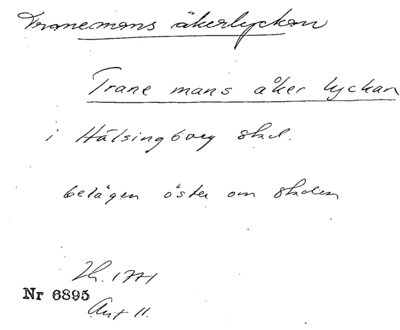 Tranemans åkerlyckan
Trane mans åker lyckan
i Hälsingborg stad.
belägen öster om staden
1771
Nr 6895
Akt 11.